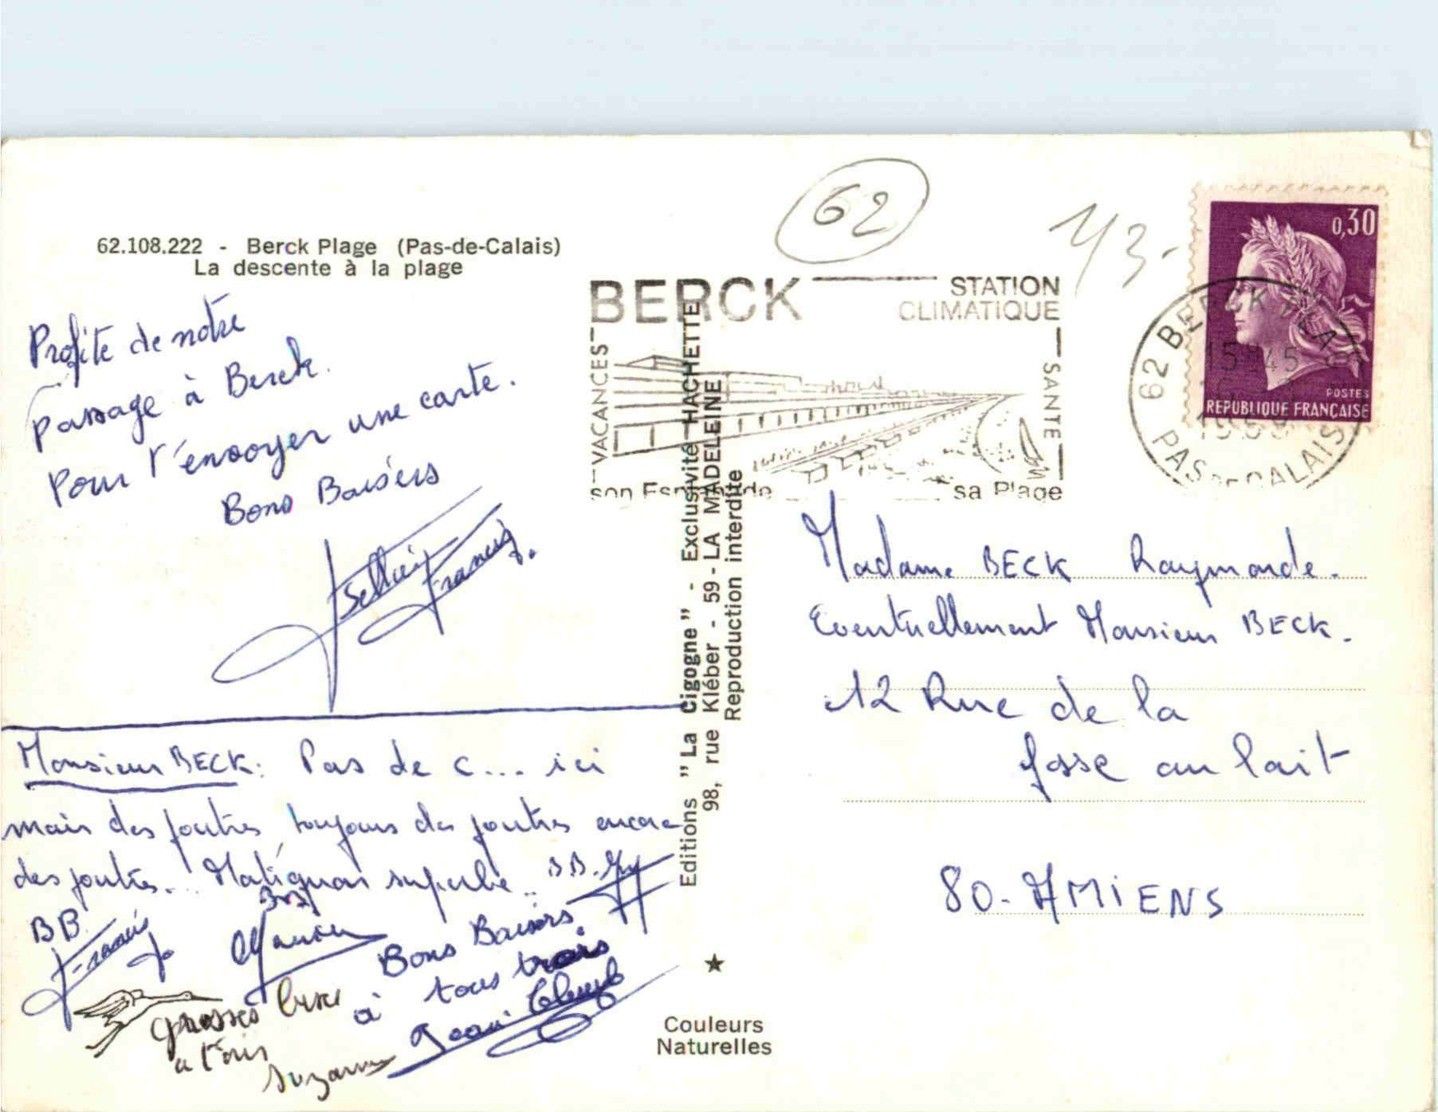 62.108.222 - Berck Plage (Pas-de-Calais)
La descente à la plage
Profite de notre
passage à Berck.
pour t'envoyer une carte.
Bons Baisers
Francis.
Monsieur BECK: Pas de c... ici
mais des joutes toujours des joutes encore
des joutes... Matignon superbe.. BB.
BB.
Francis
Bons Baisers
à tous trois
Jean
grosses bises
à tous
Suzanne
Editions "La Cigogne" - Exclusivité HACHETTE
98, rue Kléber - 59 - LA MADELEINE
Reproduction interdite
Couleurs
Naturelles
62
43-
BERCK STATION
CLIMATIQUE
VACANCES
SANTÉ
son Esplanade sa Plage
62 BERCK PLAGE
15 H 45
PAS DE CALAIS
0,30
POSTES
REPUBLIQUE FRANÇAISE
Madame BECK Raymonde.
Eventuellement Monsieur BECK.
12 Rue de la
fosse au lait
80 - AMIENS